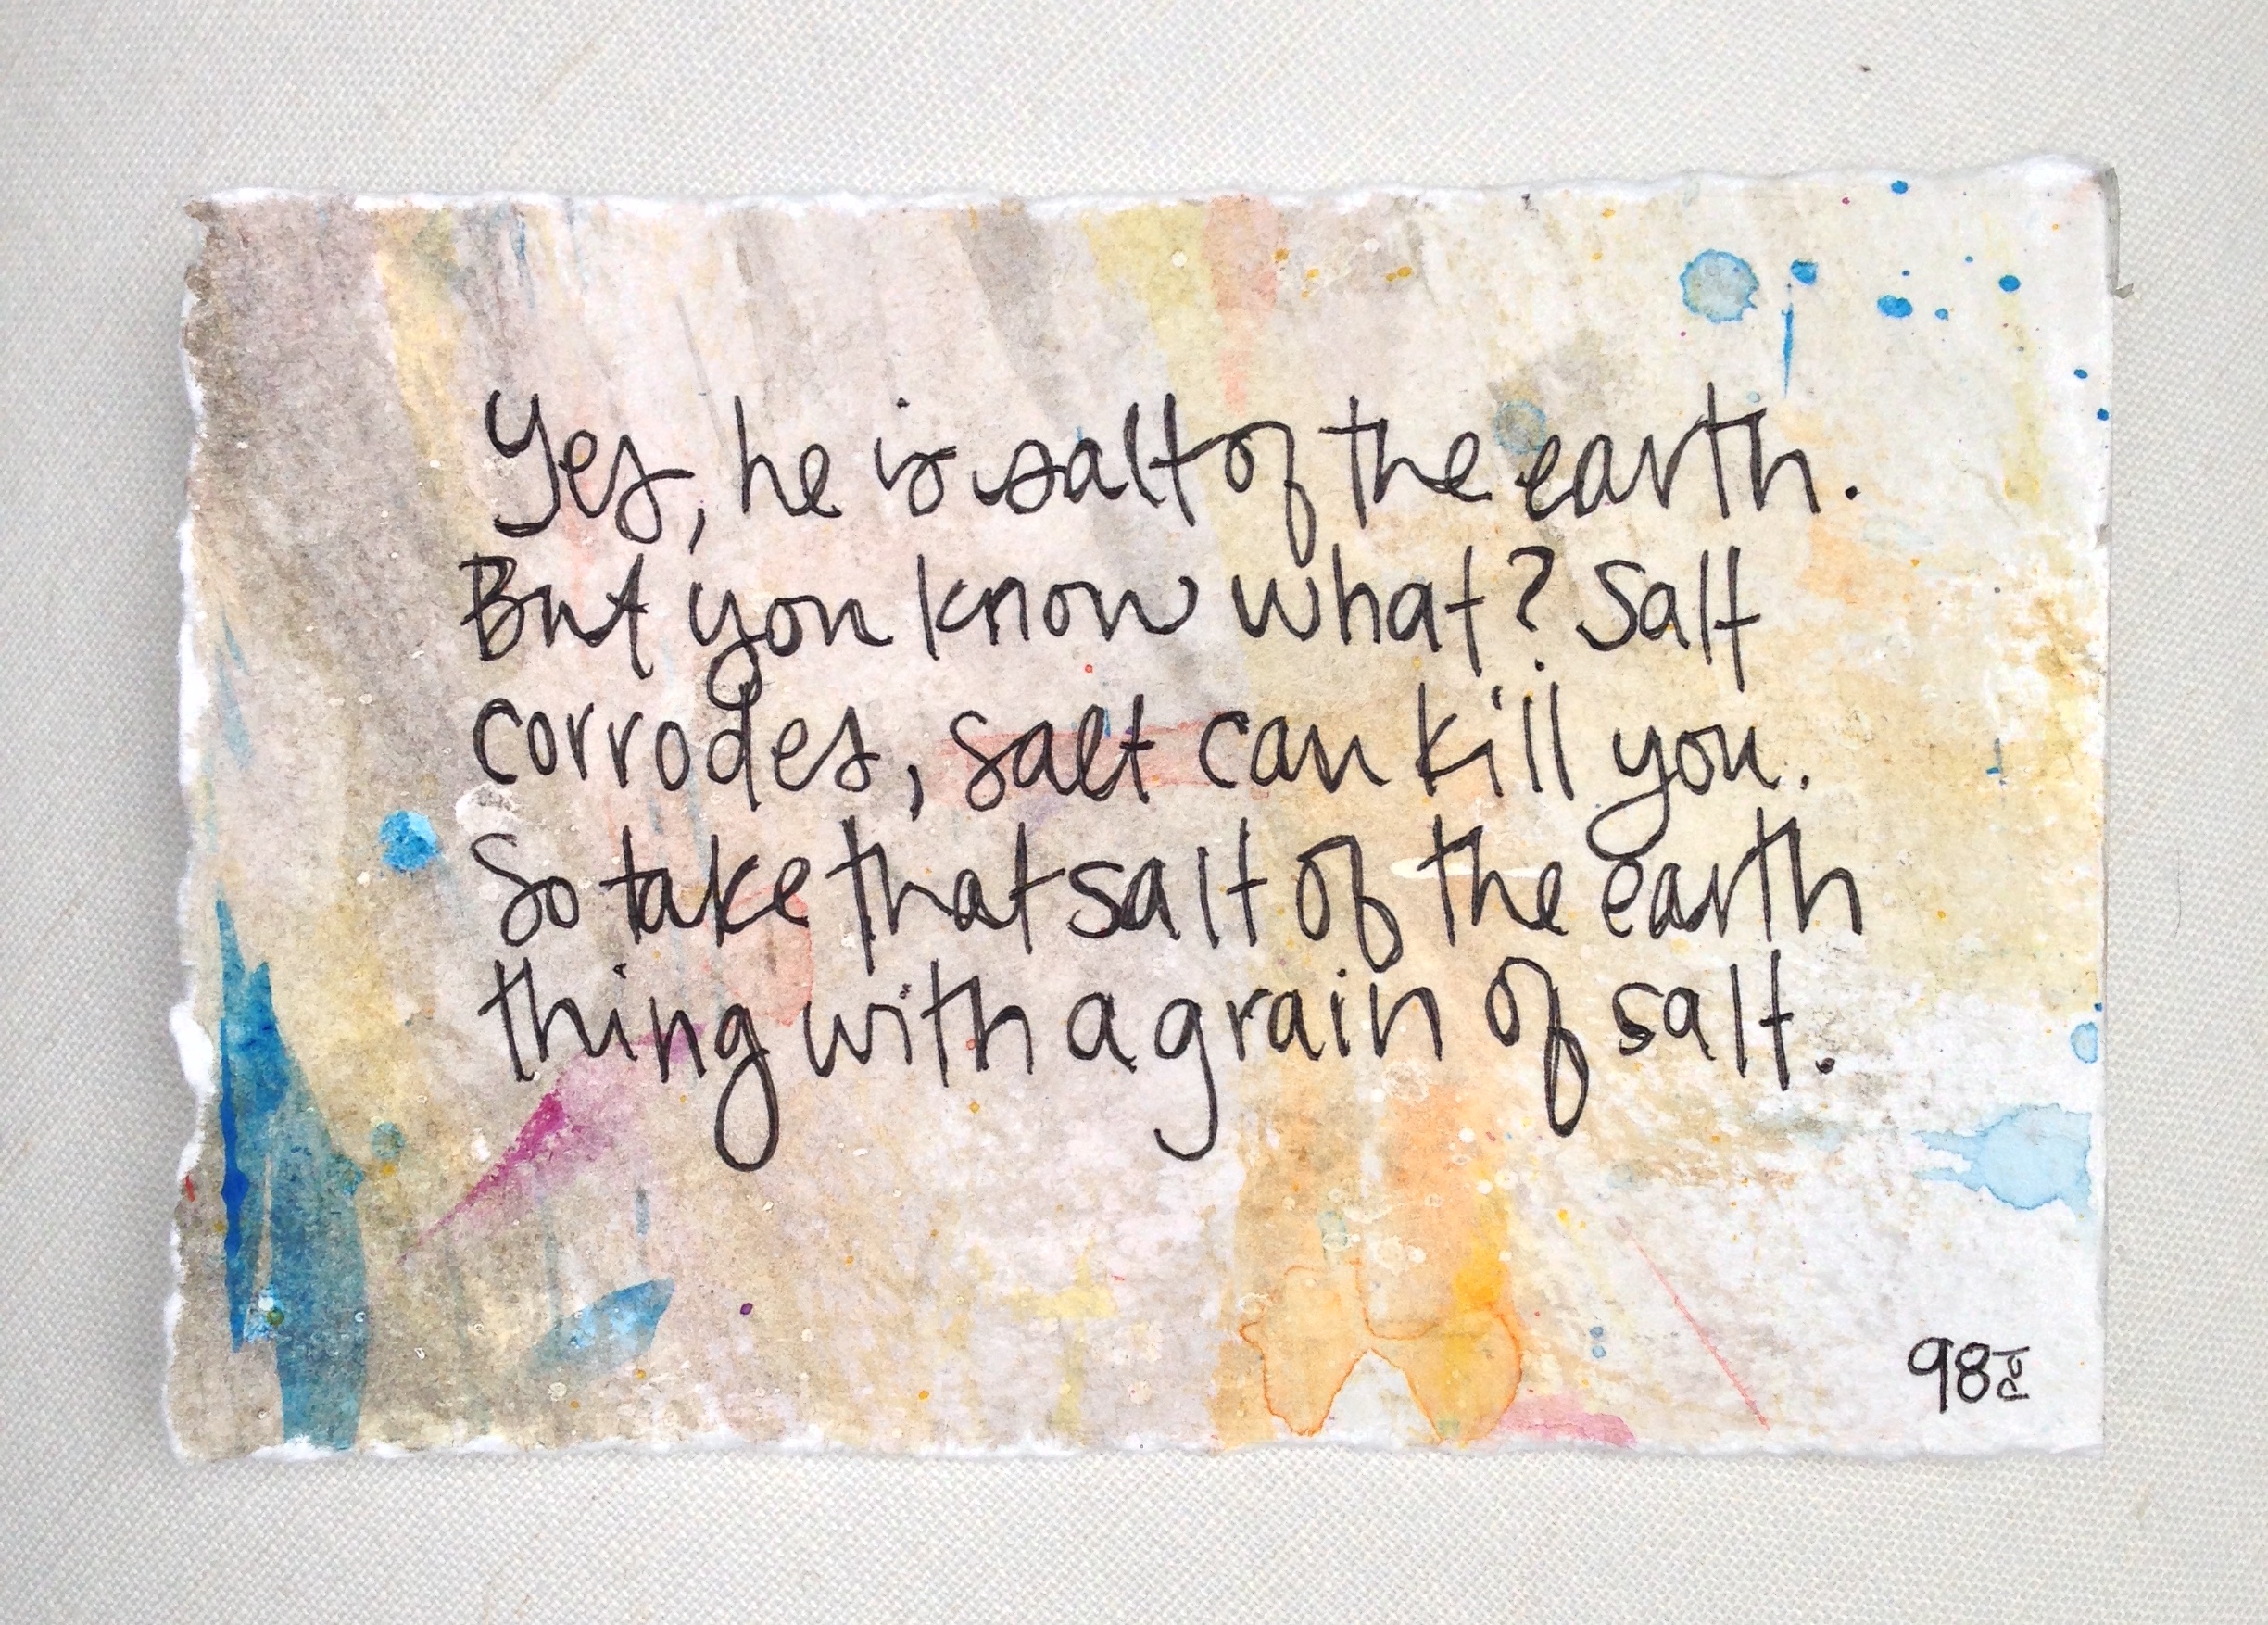 Yes, he is salt of the earth.
But you know what? Salt
corrodes, salt can kill you.
So take that salt of the earth
thing with a grain of salt.
98